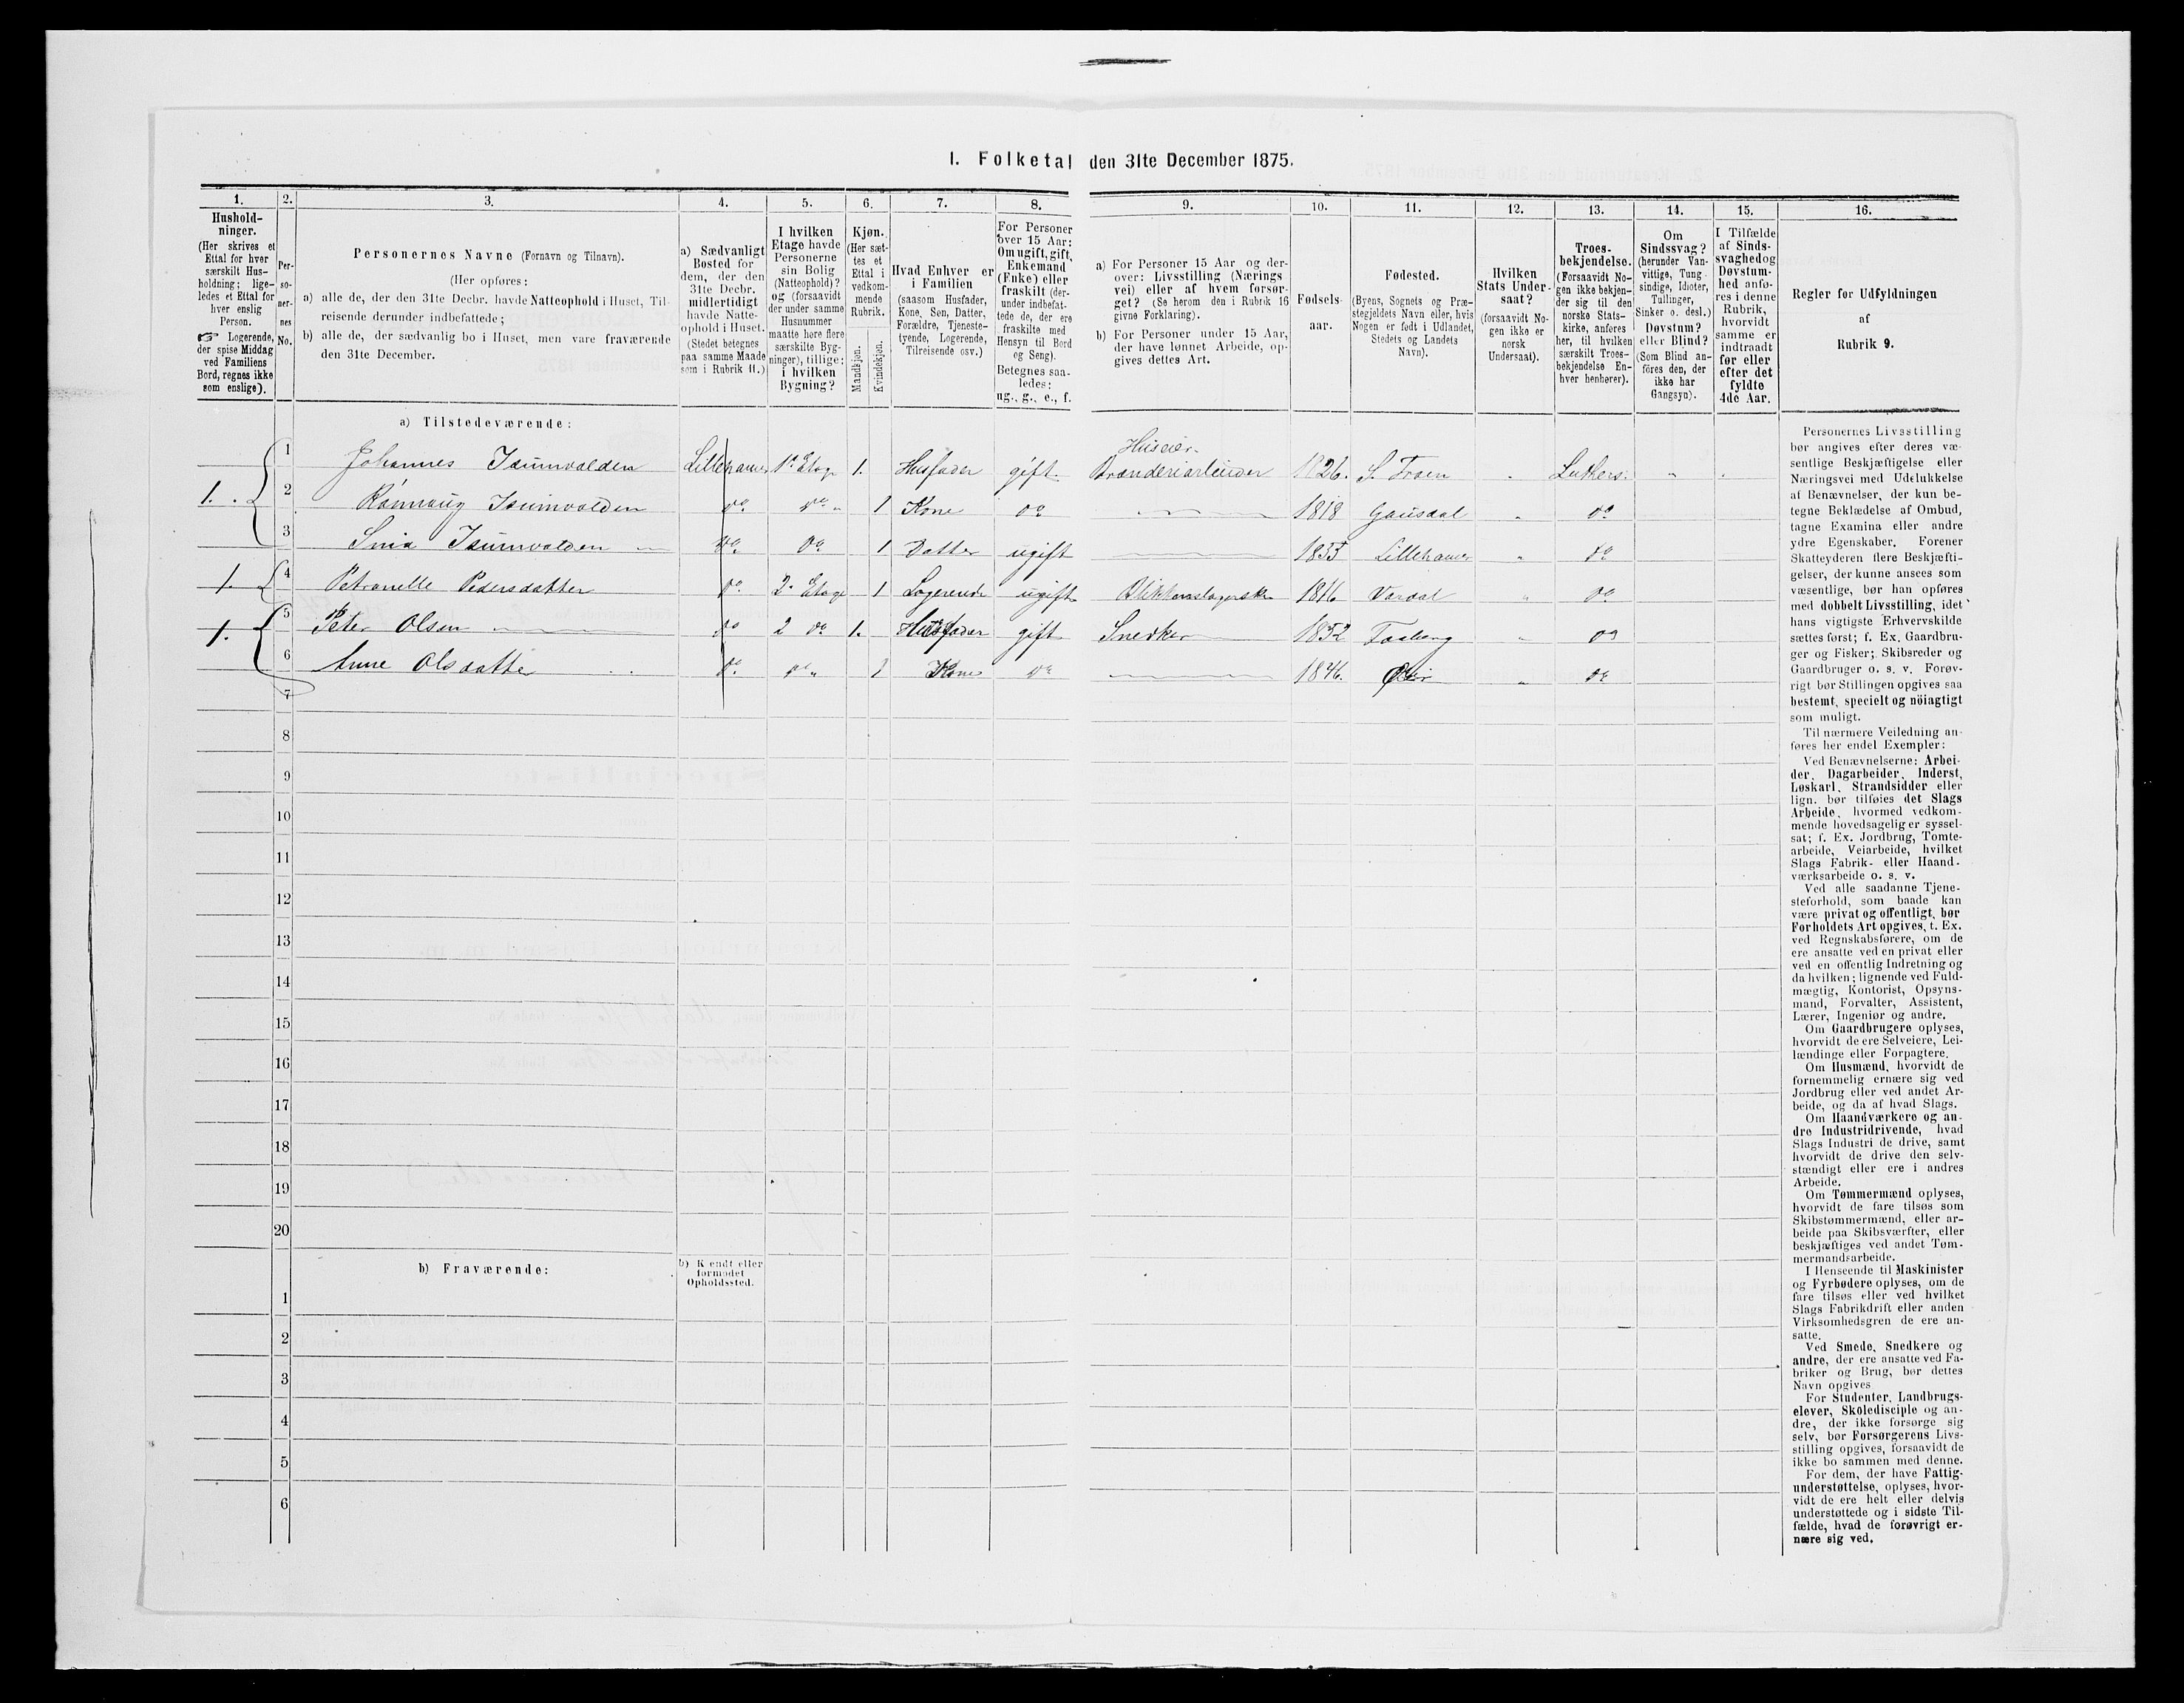 1. Folketal den 31te December 1875.
1. 2. 3. 4. 5. 6. 7. 8. 9. 10. 11. 12. 13. 14. 15. 16.
Hushold-
ninger.
(Her skrives et
Ettal for hver
særskilt Hus-
holdning; lige-
ledes et Ettal for
hver enslig
Person.
☞ Logerende,
der spise Middag
ved Familiens
Bord, regnes ikke
som enslige).
Per-
so-
ner-
nes
No.
Personernes Navne (Fornavn og Tilnavn).
(Her opføres:
a) alle de, der den 31te Decbr. havde Natteophold i Huset, Til-
reisende derunder indbefattede;
b) alle de, der sædvanlig bo i Huset, men vare fraværende
den 31te December.
a) Sædvanligt
Bosted for
dem, der den
31te Decbr.
midlertidigt
havde Natte-
ophold i Huset.
(Stedet betegnes
paa samme Maade
som i Rubrik 11.)
I hvilken
Etage havde
Personerne
sin Bolig
(Natteophold)?
og (forsaavidt
der under samme
Husnummer
maatte høre flere
særskilte Byg-
ninger), tillige:
i hvilken
Bygning?
Kjøn.
(Her sæt-
tes et
Ettal i
vedkom-
mende
Rubrik.
Mandkjøn.
Kvindekjøn.
Hvad Enhver er
i Familien
(saasom Husfader,
Kone, Søn, Datter,
Forældre, Tjeneste-
tyende, Logerende,
Tilreisende osv.)
For Personer
over 15 Aar:
Om ugift, gift,
Enkemand
(Enke) eller
fraskilt (der-
under indbefat-
tede de, der ere
fraskilte med
Hensyn til Bord
og Seng).
Betegnes saa-
ledes:
ug., g., e., f.
a) For Personer 15 Aar og der-
over: Livsstilling (Nærings
vei) eller af hvem forsør-
get? (Se herom den i Rubrik 16
givne Forklaring).
b) For Personer under 15 Aar,
der have lønnet Arbeide, op-
gives dettes Art.
Fødsels-
aar.
Fødested.
(Byens, Sognets og Præ-
stegjeldets Navn eller, hvis
Nogen er født i Udlandet,
Stedets og Landets
Navn).
Hvilken
Stats Under-
saat?
(forsaavidt No-
gen ikke er
norsk
Undersaat).
Troes-
bekjendelse.
(Forsaavidt No-
gen ikke bekjen-
der sig til den
norske Stats-
kirke, anføres
her, til hvilken
særskilt Troes-
bekjendelse En-
hver henhører).
Om
Sindssvag?
(herunder Van-
vittige, Tung
sindige, Idioter,
Tullinger,
Sinker o. desl.)
Døvstum?
eller Blind?
(Som Blind an-
føres den, der
ikke har
Gangsyn).
I Tilfælde
af Sinds-
svaghed og
Døvstum-
hed anfø-
res i denne
Rubrik,
hvorvidt
samme er
indtraadt
før eller
efter det
fyldte
4de Aar.
Regler for Udfyldningen
af
Rubrik 9.
a) Tilstedeværende:
Huseier
1 Johannes Isumvolden Lillehamer 1ste Etage 1. Husfader gift 1826. S. Froen Luthers.
1. 2 Rønnaug Isumvolden do do 1 Kone do 1818 Gausdal do
3 Isumvolden do do 1 Datter ugift 1855 Lillehamer do
1. 4 Petronelle Pedersdatter do 2 Etage 1 Logerende ugift 1816 Vardal do
1. 5 Peter Olsen do 2 do 1. Husfader gift Snedker 1852 Faaberg do
6 Anne Olsdatter do do 1 Kone do 1846. Øier do
7
8
9
10
11
12
13
14
15
16
17
18
19
20
b) Fraværende:
b) Kendt eller
formodet
Opholdssted.
1
2
3
4
5
6
Personernes Livsstilling
bør angives efter deres væ-
sentlige Beskjæftigelse eller
Næringsvei med Udelukkelse
af Benævnelser, der kun be-
tegne Beklædelse af Ombud,
tagne Examina eller andre
ydre Egenskaber. Forener
Skatteyderen flere Beskjæfti-
gelser, der kunne ansees som
væsentlige, bør han opføres
med dobbelt Livsstilling, idet
hans vigtigste Erhvervskilde
sættes først; f. Ex. Gaardbru-
ger og Fisker; Skibsreder og
Gaardbruger o. s. v. Forøv-
rigt bør Stillingen opgives saa
bestemt, specielt og nöiagtigt
som muligt.
Til nærmere Veiledning an-
føres her endel Exempler:
Ved Benævnelserne: Arbei-
der, Dagarbeider, Inderst,
Løskarl, Strandsidder eller
lign. bør tilføies det Slags
Arbeide, hvormed vedkom-
mende hovedsagelig er syssel-
sat; f. Ex. Jordbrug, Tomte-
arbeide, Veiarbeide, hvilket
Slags Fabrik- eller Haand-
værksarbeide o. s. v.
Ved alle saadanne Tjene-
steforhold, som baade kan
være privat og offentligt, bør
Forholdets Art opgives, t. Ex.
ved Regnskabsførere, om de
ere ansatte ved en privat eller
ved en offentlig Indretning og
da hvilken; lignende ved Fuld-
mægtig, Kontorist, Opsyns-
mand, Forvalter, Assistent,
Lærer, Ingeniør og andre.
Om Gaardbrugere oplyses,
hvorvidt de ere Selveiere, Lei-
lændinge eller Forpagtere.
Om Husmænd, hvorvidt de
fornemmelig ernære sig ved
Jordbrug eller ved andet Ar-
beide, og da af hvad Slags.
Om Haandværkere og an-
dre Industridrivende, hvad
Slags Industri de drive, samt
hvorvidt de drive den selv-
stændigt eller ere i andres
Arbeide.
Om Tømmermænd oplyses,
hvorvidt de fare tilsøs som
Skibstømmermænd, eller ar-
beide paa Skibsværfter, eller
beskjæftiges ved andet Tøm-
mermandsarbeide.
I Henseende til Maskinister
og Fyrbødere oplyses, om de
fare tilsøs eller ved hvilket
Slags Fabrikdrift eller anden
Virksomhedsgren de ere an-
satte.
Ved Smede, Snedkere og
andre, der ere ansatte ved Fa-
briker og Brug, bør dettes
Navn opgives
For Studenter, Landbrugs-
elever, Skoledisciple og an-
dre, der ikke forsørge sig
selv, bør Forsørgerens Livs-
stilling opgives, forsaavidt de
ikke bo sammen med denne.
For dem, der have Fattig-
understøttelse, oplyses, hvor-
vidt de ere helt eller delvis
understøttede og i sidste Til-
fælde, hvad de forøvrigt er-
nære sig ved.